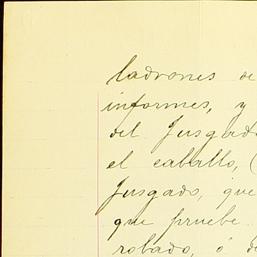 ladrones de
informes, y
del Jusgado
el caballo, (
Jusgado, que
que pruebe
robado, ó de